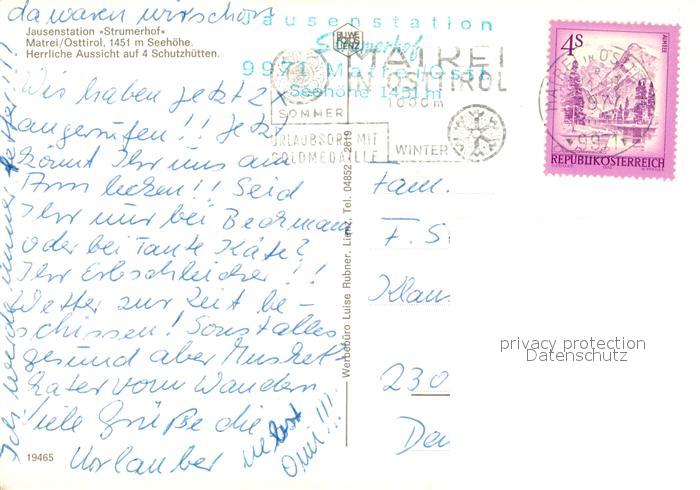 da waren wir schon
Jausenstation »Strumerhof«
Matrei/Osttirol, 1451 m Seehöhe.
Herrliche Aussicht auf 4 Schutzhütten.
Jausenstation
Strumerhof
9971 Matrei/Ostt.
Seehöhe 1451 m
RUWE
FOTOS
LIENZ
MATREI
OSTTIROL
1000m
SOMMER
URLAUBSORT MIT
GOLDMEDAILLE
WINTER
MATREI IN OSTTIROL
9971
4S
REPUBLIK ÖSTERREICH
Wir haben jetzt 2x
angerufen!! Jetzt
könnt Ihr uns am
Arm lecken!! Seid
Ihr nur bei Beckmann
oder bei Tante Käte?
Ihr Erbschleicher!!
Wetter zur Zeit be-
schissen! Sonst alles
gesund aber Muskel-
kater vom Wandern
Viele Grüße die
Urlauber
nebst
Omi!!!
Ich werde immer fetter!!!
Werbebüro Luise Rubner, Lienz, Tel. 04852 2819
Fam.
F. S
Klaus
230
Den
19465
privacy protection
Datenschutz